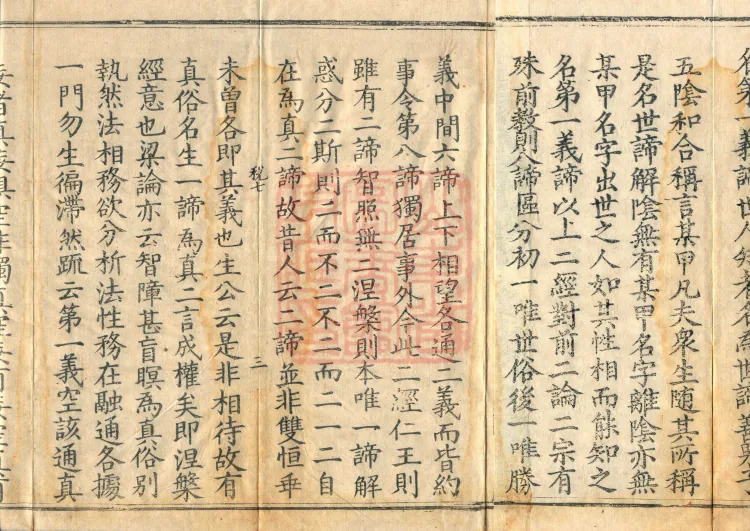 名第一義諦世人知者名為世諦善男子
五陰和合稱言某甲凡夫衆生随其所稱
是名世諦解陰無有某甲名字離陰亦無
某甲名字出世之人如其性相而能知之
名第一義諦以上二經對前二論二宗有
殊前教則八諦區分初一唯世俗後一唯勝
義中間六諦上下相望各通二義而皆約
事令第八諦獨居事外今此二經仁王則
雖有二諦智照無二涅槃則本唯一諦解
惑分二斯則二而不二不二而二一二自
在為真二諦故昔人云二諦並非雙恒乖
未曽各即其義也生公云是非相待故有
税七
三
真俗名生一諦為真二言成權矣即涅槃
經意也梁論亦云智障甚盲瞑為真俗別
執然法相務欲分析法性務在融通各據
一門勿生徧滯然疏云第一義空該通真